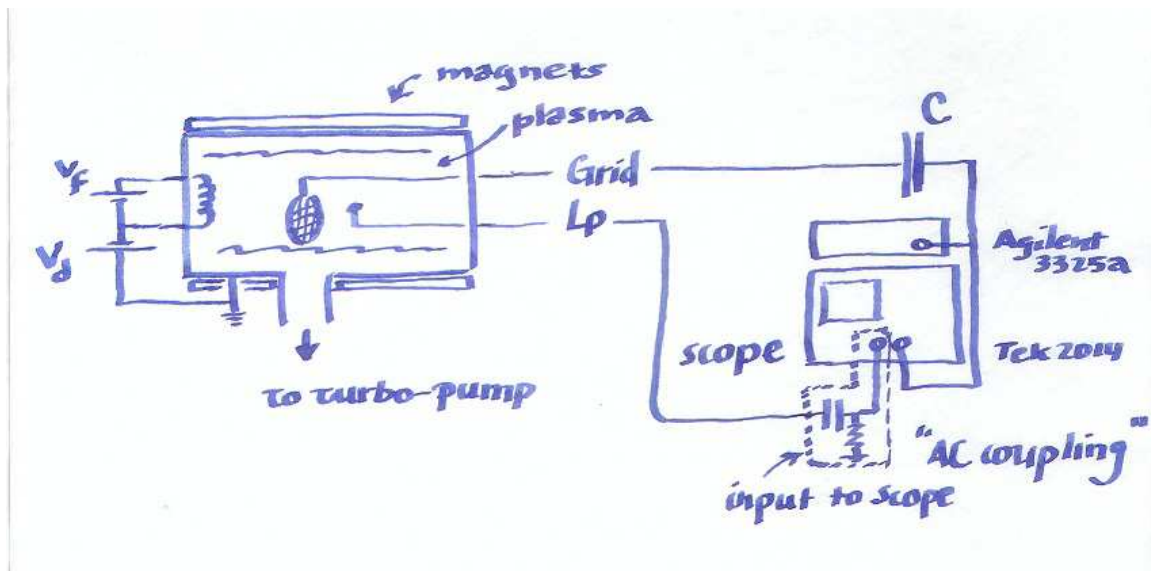 magnets
plasma
C
Vf
Grid
Lp
Vd
Agilent
3325a
scope
Tek 2014
To turbo-pump
"AC coupling"
input to scope